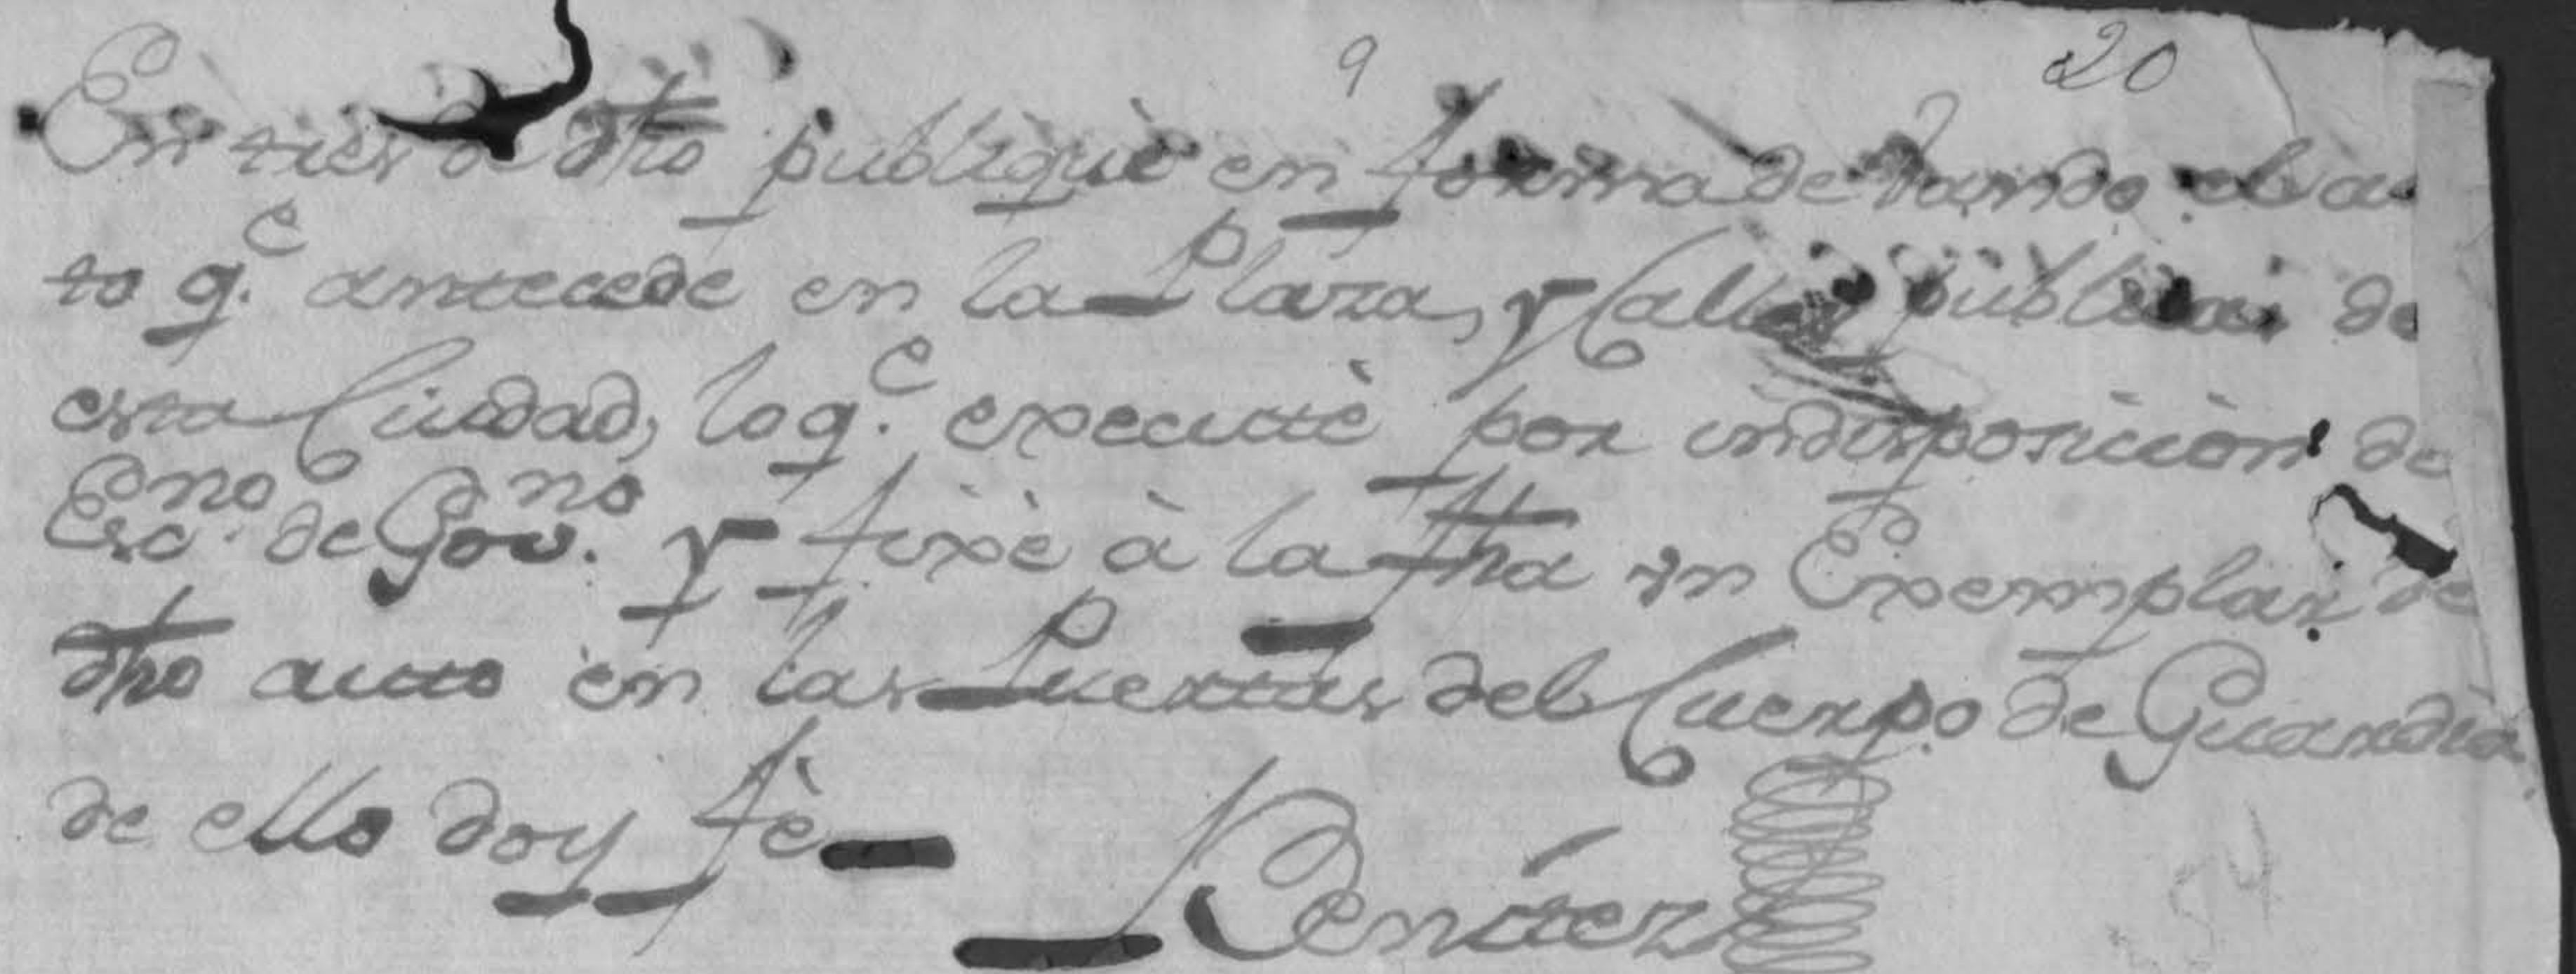 9 20
En tres de dho publiquè en forma de vando el au
to q.e antecede en la Plaza, y Calles publicas de
esta Ciudad, lo q.e executtè por indisposicion de
Esc.no de Gov.no y fixè à la fha vn Exemplar de
dho autto en las Puerttas del Cuerpo de Guardia
de ello doy fè
Benittez
54